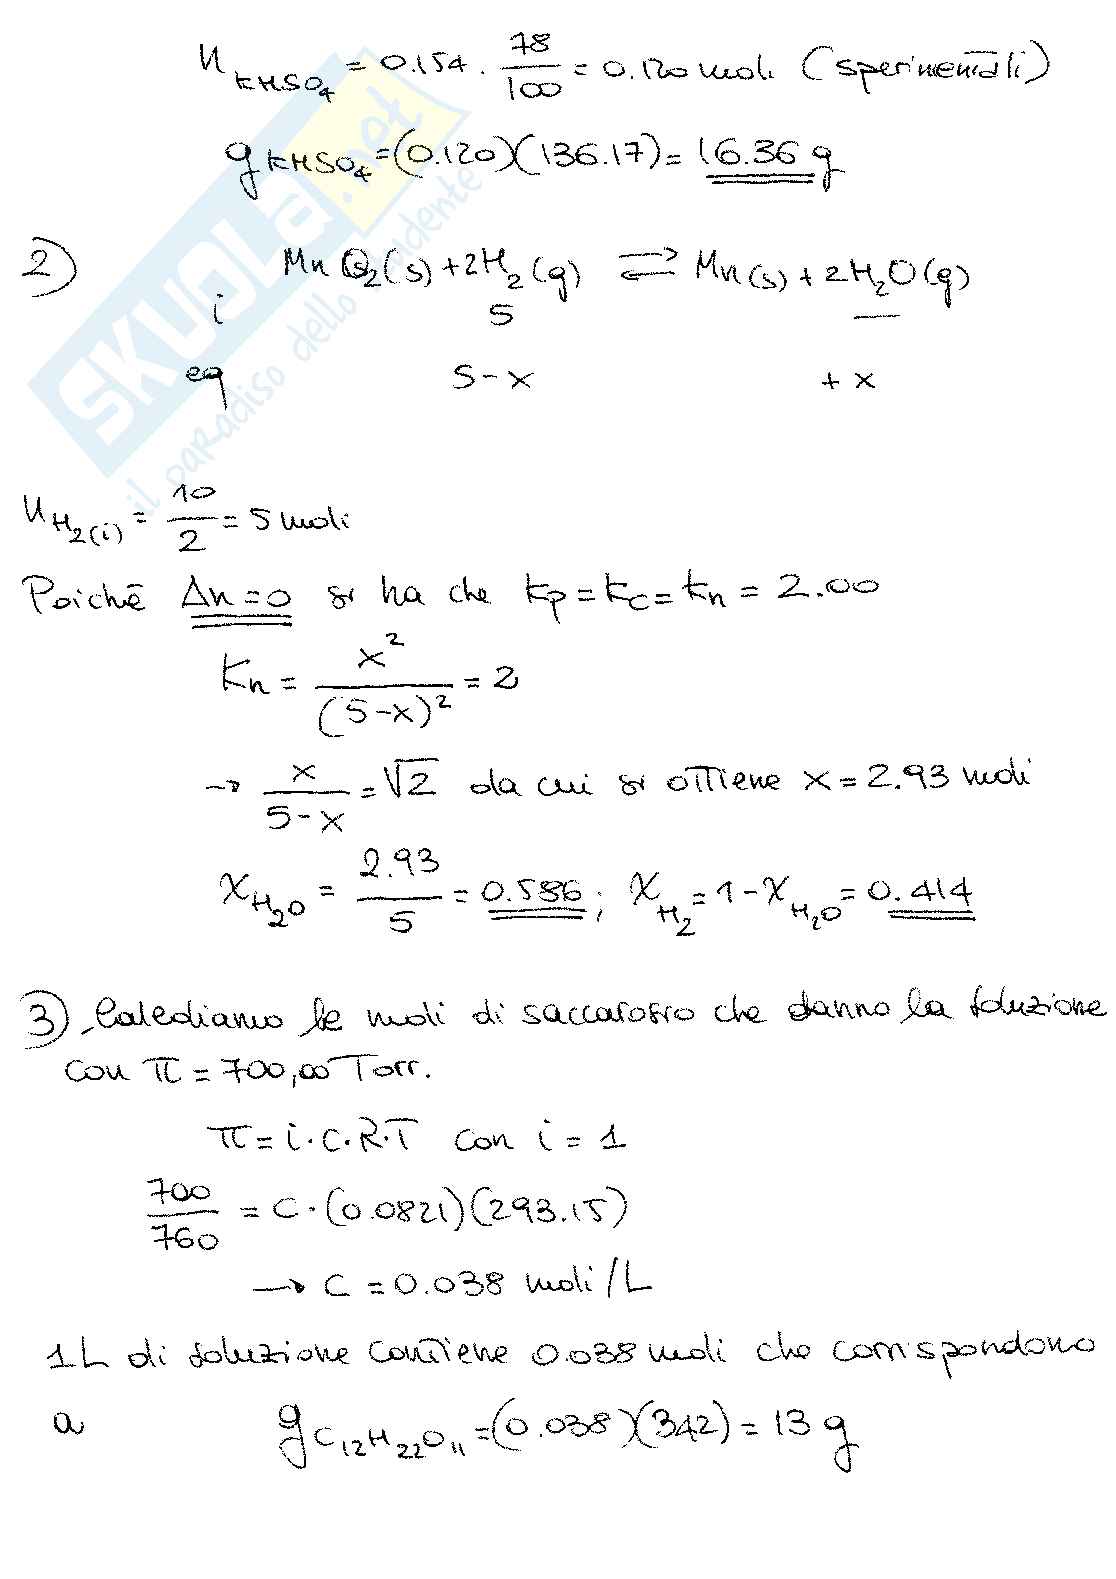 n KHSO4 = 0.154 · 78/100 = 0.120 moli (sperimentali)
g KHSO4 = (0.120)(136.17) = 16.36 g
2) MnO2(s) + 2H2(g) ⇄ Mn(s) + 2H2O(g)
i 5 —
eq 5-x +x
n H2(i) = 10/2 = 5 moli
Poichè Δn=0 si ha che Kp = Kc = Kn = 2.00
Kn = x²/(5-x)² = 2
→ x/(5-x) = √2 da cui si ottiene x = 2.93 moli
χ H2O = 2.93/5 = 0.586 ; χ H2 = 1 - χ H2O = 0.414
3) Calcoliamo le moli di saccarosio che danno la soluzione
con π = 700,00 Torr.
π = i·C·R·T con i = 1
700/760 = C·(0.0821)(293.15)
→ C = 0.038 moli/L
1L di soluzione contiene 0.038 moli che corrispondono
a g C12H22O11 = (0.038)(342) = 13 g
SKUOLA.net
il paradiso dello studente